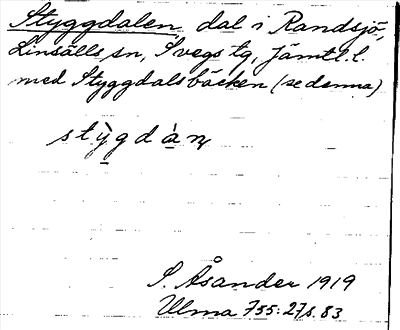 Styggdalen, dal i Randsjö,
Linsälls sn, Svegs tg, Jämtl. l.
med Styggdalsbäcken (se denna)
stỳgdàn
S. Åsander 1919
Ulma 755:27 s. 83